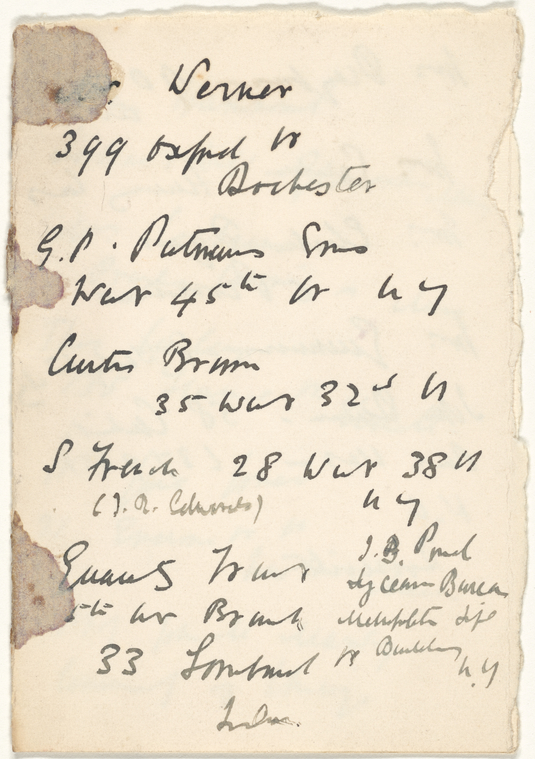 Werner
399 Oxford St
Rochester
G. P. Putnams Sons
West 45th St N Y
Curtis Brown
35 West 32nd St
S French 28 West 38 St
(J. R. Edwards) N Y
Guaranty Trust
5th Av Branch
33 Lombard St
J. B. Pond
Lyceum Bureau
Metropolitan Life
Building
N.Y